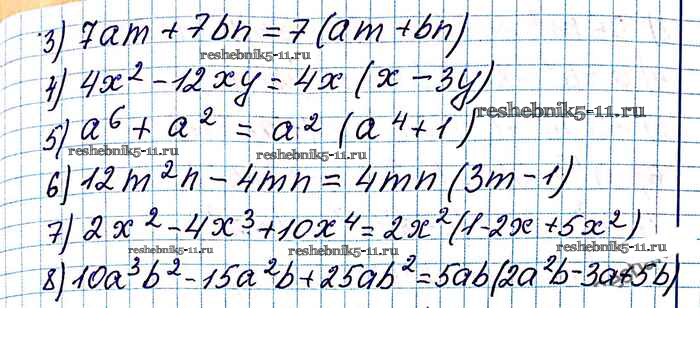 3) 7am + 7bn = 7(am + bn)
reshebnik5-11.ru
4) 4x² - 12xy = 4x(x - 3y)
reshebnik5-11.ru
5) a⁶ + a² = a²(a⁴ + 1)
reshebnik5-11.ru reshebnik5-11.ru
6) 12m²n - 4mn = 4mn(3m - 1)
7) 2x² - 4x³ + 10x⁴ = 2x²(1 - 2x + 5x²)
reshebnik5-11.ru reshebnik5-11.ru
8) 10a³b² - 15a²b + 25ab² = 5ab(2a²b - 3a + 5b)